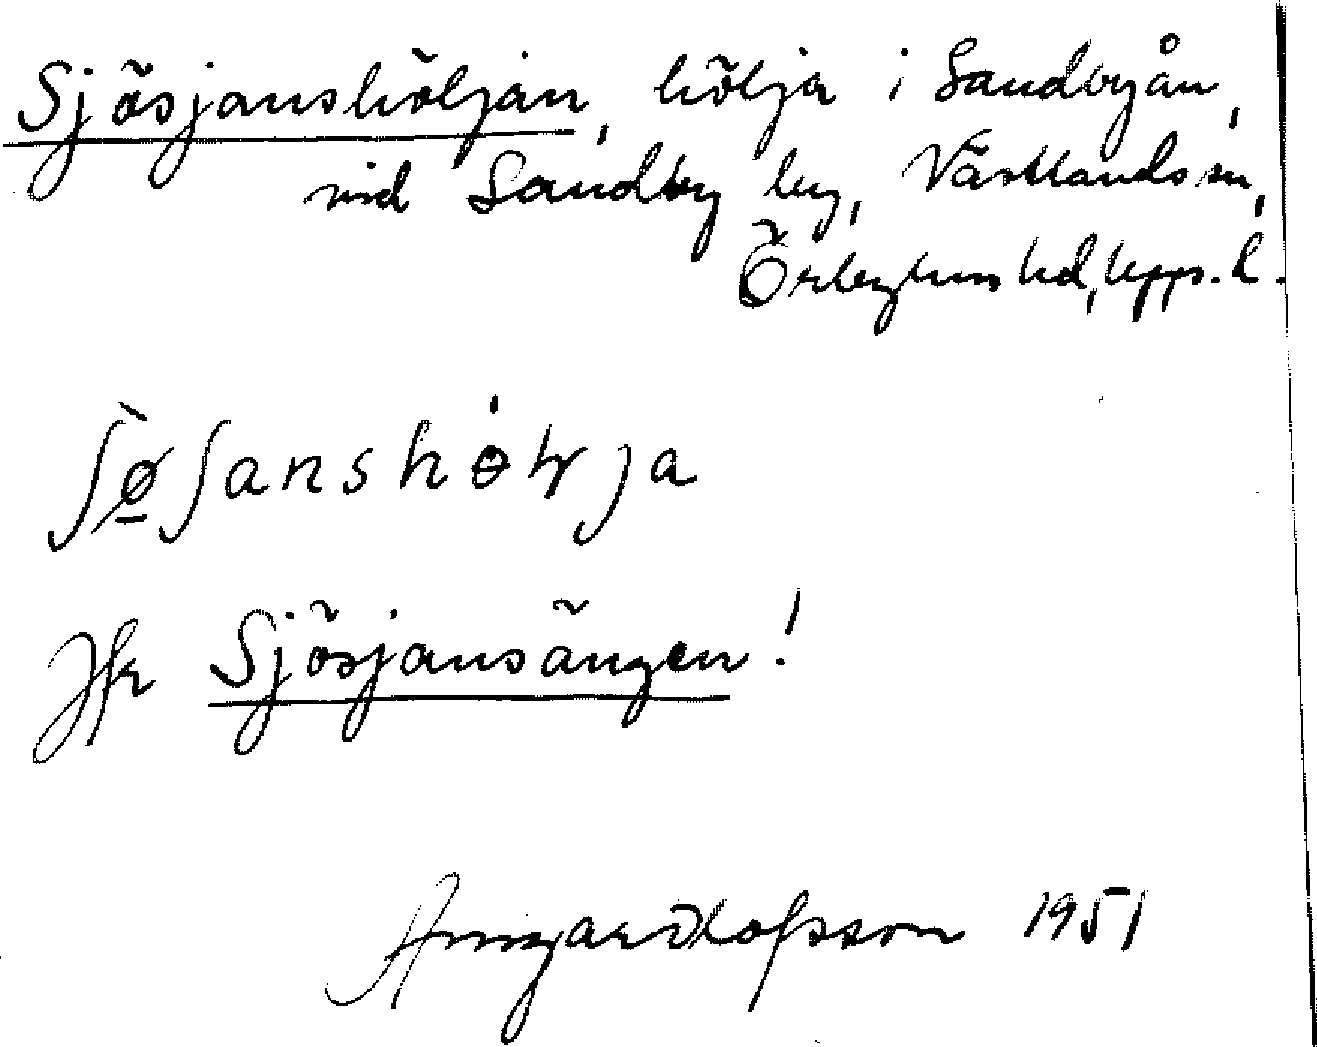 Sjösjanshöljan, hölja i Sandbyån,
vid Sandby by, Västlands sn,
Örbyhus hd, Upps. l.
Jfr Sjösjansängen!
Olofsson 1951